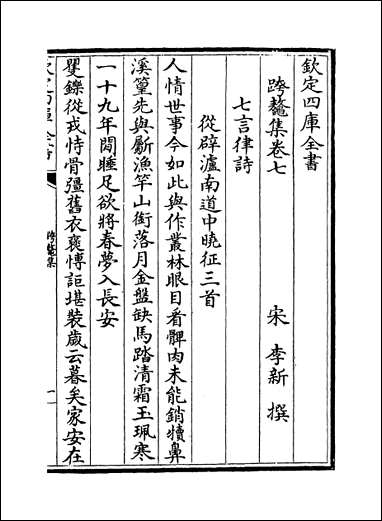 欽定四庫全書
跨鼇集卷七
宋 李新 撰
七言律詩
從辟瀘南道中曉征三首
人情世事今如此與作叢林眼目看髀肉未能銷犢鼻
溪篁先與斸漁竿山銜落月金盤缺馬踏清霜玉珮寒
一十九年閒睡足欲將春夢入長安
矍鑠從戎恃骨彊舊衣襃博詎堪裝歲云暮矣家安在
跨鼇集
一